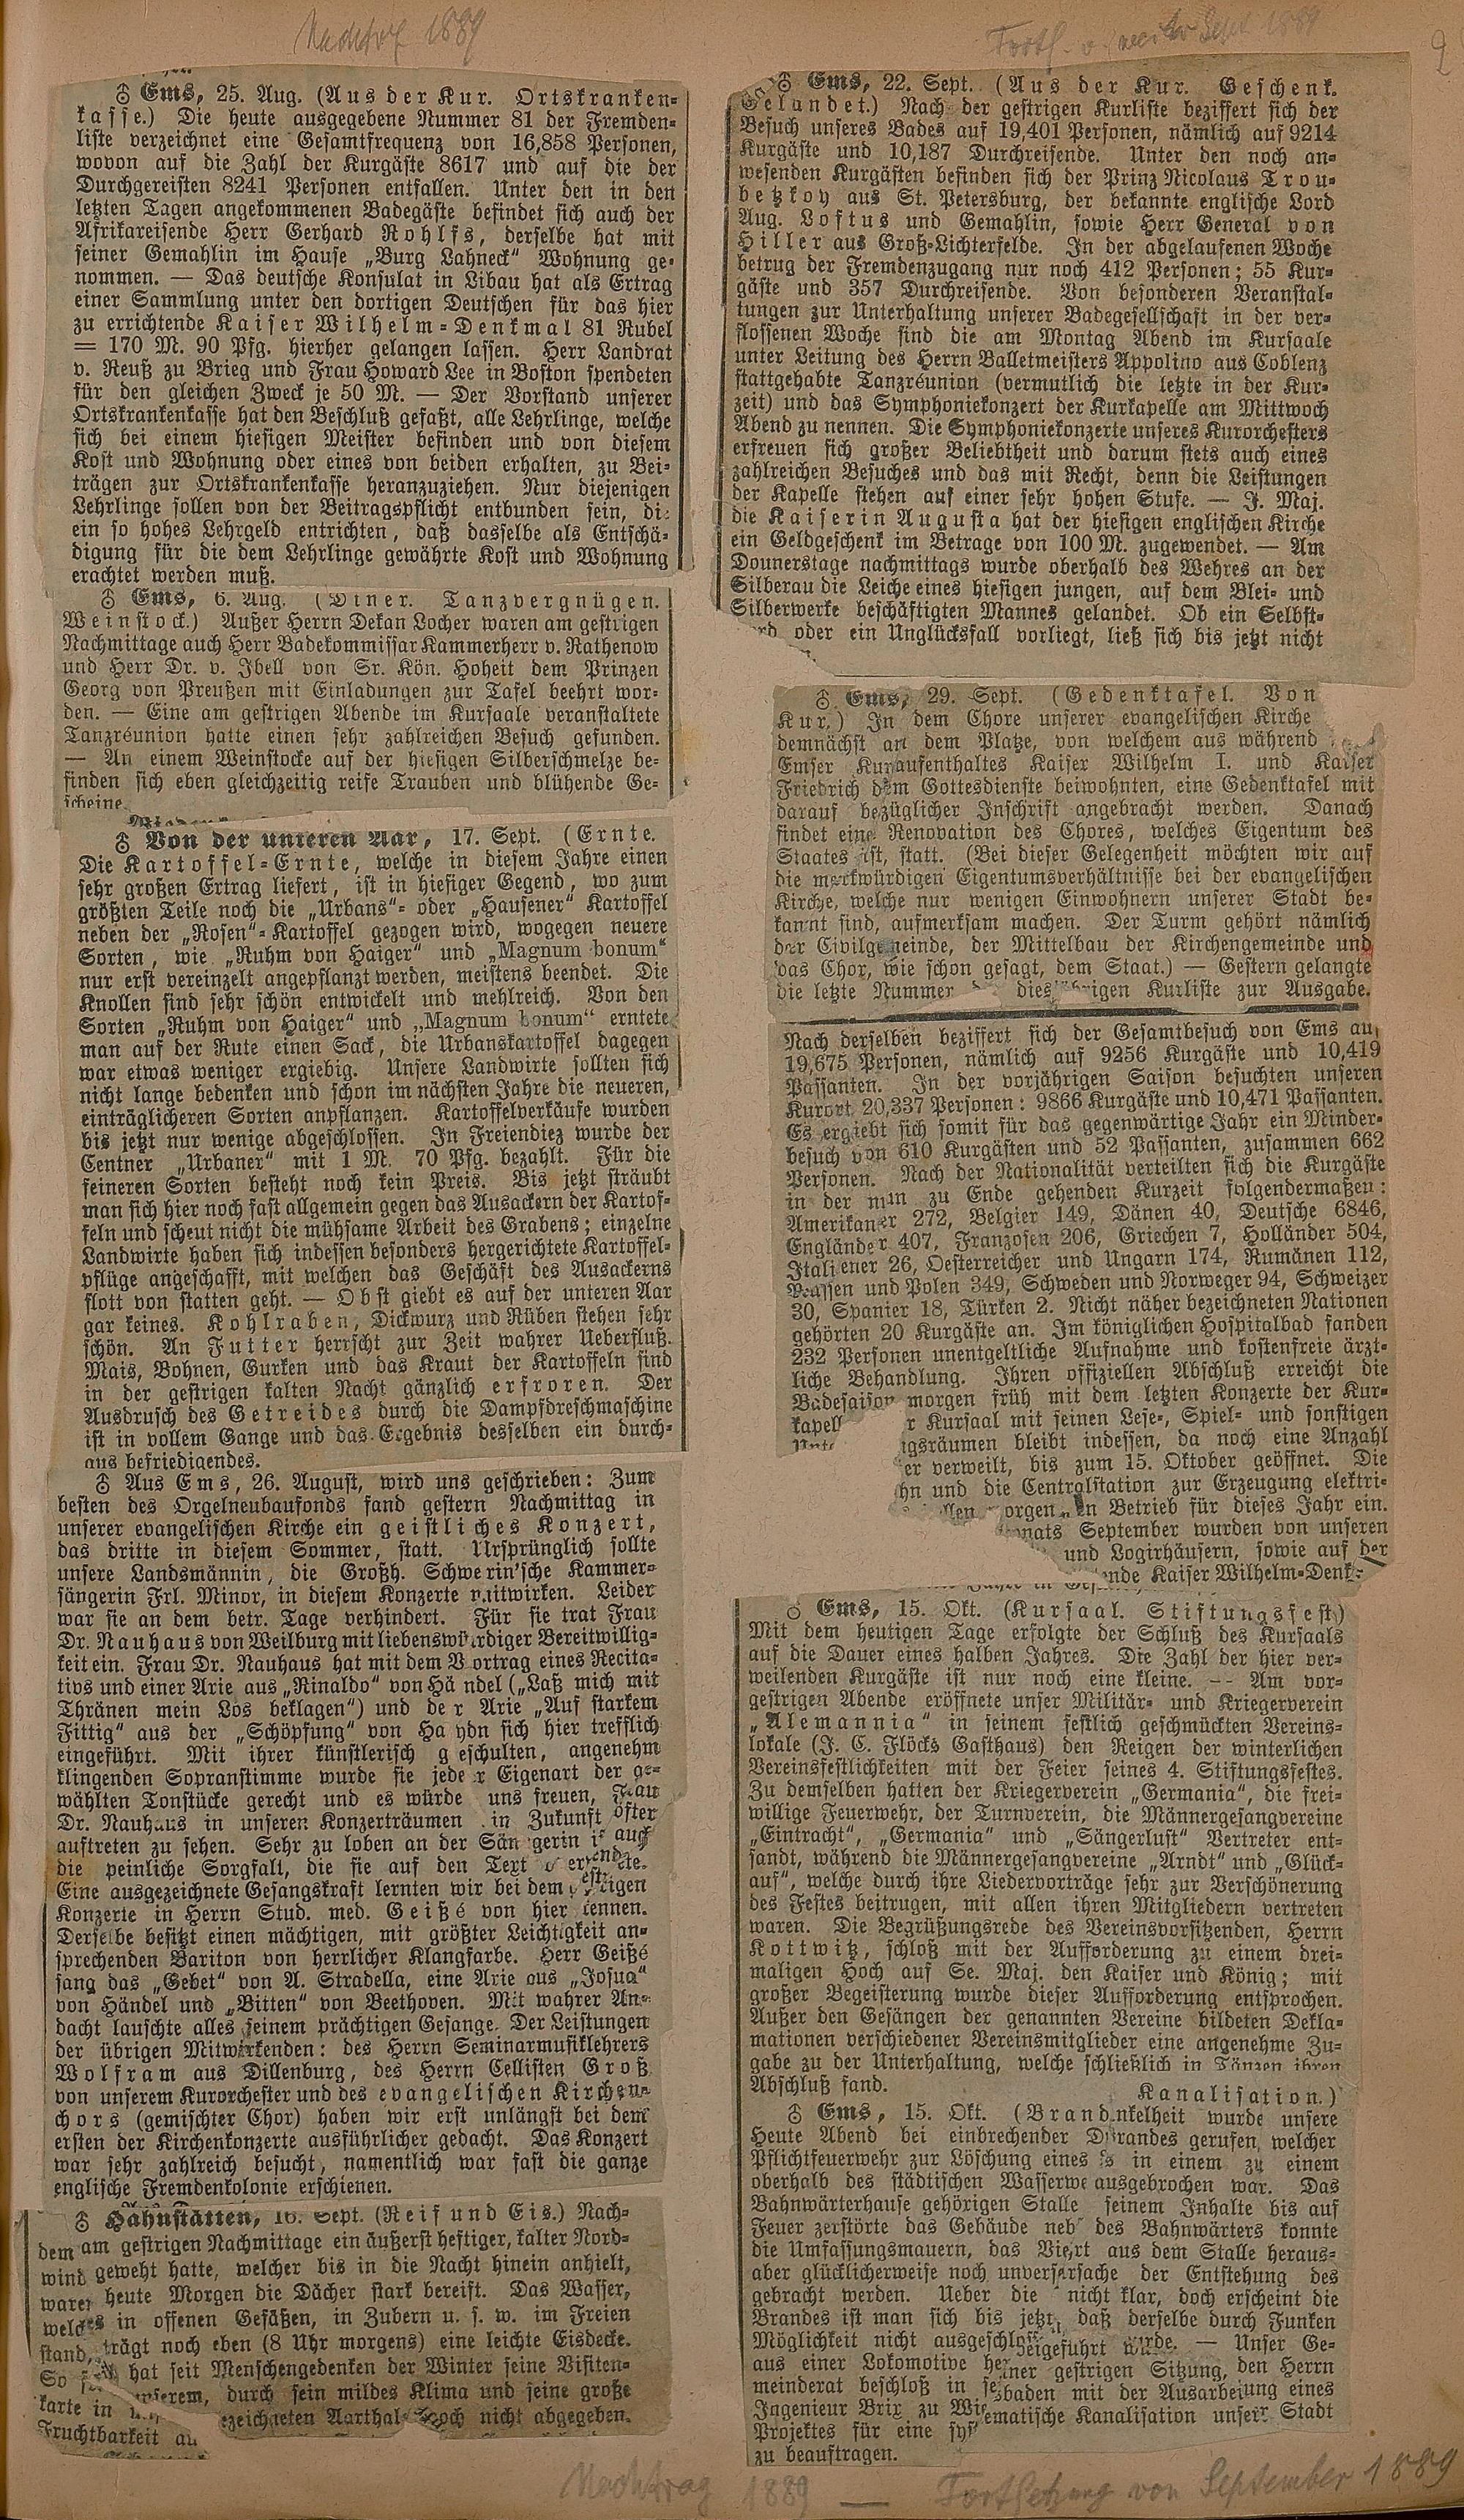 1889
Sept 1889
2
♁ Ems, 25. Aug. (Aus der Kur. Ortskranken-
kasse.) Die heute ausgegebene Nummer 81 der Fremden-
liste verzeichnet eine Gesamtfrequenz von 16,858 Personen,
wovon auf die Zahl der Kurgäste 8617 und auf die der
Durchgereisten 8241 Personen entfallen. Unter den in den
letzten Tagen angekommenen Badegäste befindet sich auch der
Afrikareisende Herr Gerhard Rohlfs, derselbe hat mit
seiner Gemahlin im Hause „Burg Lahneck“ Wohnung ge-
nommen. — Das deutsche Konsulat in Libau hat als Ertrag
einer Sammlung unter den dortigen Deutschen für das hier
zu errichtende Kaiser Wilhelm-Denkmal 81 Rubel
= 170 M. 90 Pfg. hierher gelangen lassen. Herr Landrat
v. Reuß zu Brieg und Frau Howard Lee in Boston spendeten
für den gleichen Zweck je 50 M. — Der Vorstand unserer
Ortskrankenkasse hat den Beschluß gefaßt, alle Lehrlinge, welche
sich bei einem hiesigen Meister befinden und von diesem
Kost und Wohnung oder eines von beiden erhalten, zu Bei-
trägen zur Ortskrankenkasse heranzuziehen. Nur diejenigen
Lehrlinge sollen von der Beitragspflicht entbunden sein, die
ein so hohes Lehrgeld entrichten, daß dasselbe als Entschä-
digung für die dem Lehrlinge gewährte Kost und Wohnung
erachtet werden muß.
♁ Ems, 6. Aug. (Diner. Tanzvergnügen.
Weinstock.) Außer Herrn Dekan Locher waren am gestrigen
Nachmittage auch Herr Badekommissar Kammerherr v. Rathenow
und Herr Dr. v. Ibell von Sr. Kön. Hoheit dem Prinzen
Georg von Preußen mit Einladungen zur Tafel beehrt wor-
den. — Eine am gestrigen Abende im Kursaale veranstaltete
Tanzréunion hatte einen sehr zahlreichen Besuch gefunden.
— An einem Weinstocke auf der hiesigen Silberschmelze be-
finden sich eben gleichzeitig reife Trauben und blühende Ge-
scheine.
♁ Von der unteren Aar, 17. Sept. (Ernte.
Die Kartoffel-Ernte, welche in diesem Jahre einen
sehr großen Ertrag liefert, ist in hiesiger Gegend, wo zum
größten Teile noch die „Urbans“- oder „Hausener“ Kartoffel
neben der „Rosen“-Kartoffel gezogen wird, wogegen neuere
Sorten, wie „Ruhm von Haiger“ und „Magnum bonum“
nur erst vereinzelt angepflanzt werden, meistens beendet. Die
Knollen sind sehr schön entwickelt und mehlreich. Von den
Sorten „Ruhm von Haiger“ und „Magnum bonum“ erntete
man auf der Rute einen Sack, die Urbanskartoffel dagegen
war etwas weniger ergiebig. Unsere Landwirte sollten sich
nicht lange bedenken und schon im nächsten Jahre die neueren,
einträglicheren Sorten anpflanzen. Kartoffelverkäufe wurden
bis jetzt nur wenige abgeschlossen. In Freiendiez wurde der
Centner „Urbaner“ mit 1 M. 70 Pfg. bezahlt. Für die
feineren Sorten besteht noch kein Preis. Bis jetzt sträubt
man sich hier noch fast allgemein gegen das Ausackern der Kartof-
feln und scheut nicht die mühsame Arbeit des Grabens; einzelne
Landwirte haben sich indessen besonders hergerichtete Kartoffel-
pflüge angeschafft, mit welchen das Geschäft des Ausackerns
flott von statten geht. — Obst giebt es auf der unteren Aar
gar keines. Kohlraben, Dickwurz und Rüben stehen sehr
schön. An Futter herrscht zur Zeit wahrer Ueberfluß.
Mais, Bohnen, Gurken und das Kraut der Kartoffeln sind
in der gestrigen kalten Nacht gänzlich erfroren. Der
Ausdrusch des Getreides durch die Dampfdreschmaschine
ist in vollem Gange und das Ergebnis desselben ein durch-
aus befriedigendes.
♁ Aus Ems, 26. August, wird uns geschrieben: Zum
besten des Orgelneubaufonds fand gestern Nachmittag in
unserer evangelischen Kirche ein geistliches Konzert,
das dritte in diesem Sommer, statt. Ursprünglich sollte
unsere Landsmännin, die Großh. Schwerin'sche Kammer-
sängerin Frl. Minor, in diesem Konzerte mitwirken. Leider
war sie an dem betr. Tage verhindert. Für sie trat Frau
Dr. Nauhaus von Weilburg mit liebenswürdiger Bereitwillig-
keit ein. Frau Dr. Nauhaus hat mit dem Vortrag eines Recita-
tivs und einer Arie aus „Rinaldo“ von Händel („Laß mich mit
Thränen mein Los beklagen“) und der Arie „Auf starkem
Fittig“ aus der „Schöpfung“ von Haydn sich hier trefflich
eingeführt. Mit ihrer künstlerisch geschulten, angenehm
klingenden Sopranstimme wurde sie jeder Eigenart der ge-
wählten Tonstücke gerecht und es würde uns freuen, Frau
Dr. Nauhaus in unseren Konzerträumen in Zukunft öfter
auftreten zu sehen. Sehr zu loben an der Sängerin ist auch
die peinliche Sorgfalt, die sie auf den Text verwendete.
Eine ausgezeichnete Gesangskraft lernten wir bei dem gestrigen
Konzerte in Herrn Stud. med. Geißé von hier kennen.
Derselbe besitzt einen mächtigen, mit größter Leichtigkeit an-
sprechenden Bariton von herrlicher Klangfarbe. Herr Geißé
sang das „Gebet“ von A. Stradella, eine Arie aus „Josua“
von Händel und „Bitten“ von Beethoven. Mit wahrer An-
dacht lauschte alles seinem prächtigen Gesange. Der Leistungen
der übrigen Mitwirkenden: des Herrn Seminarmusiklehrers
Wolfram aus Dillenburg, des Herrn Cellisten Groß
von unserem Kurorchester und des evangelischen Kirchen-
chors (gemischter Chor) haben wir erst unlängst bei dem
ersten der Kirchenkonzerte ausführlicher gedacht. Das Konzert
war sehr zahlreich besucht, namentlich war fast die ganze
englische Fremdenkolonie erschienen.
♁ Hahnstätten, 16. Sept. (Reif und Eis.) Nach-
dem am gestrigen Nachmittage ein äußerst heftiger, kalter Nord-
wind geweht hatte, welcher bis in die Nacht hinein anhielt,
waren heute Morgen die Dächer stark bereift. Das Wasser,
welches in offenen Gefäßen, in Zubern u. s. w. im Freien
stand, trägt noch eben (8 Uhr morgens) eine leichte Eisdecke.
So hat seit Menschengedenken der Winter seine Visiten-
karte in unserem, durch sein mildes Klima und seine große
Fruchtbarkeit ausgezeichneten Aarthal noch nicht abgegeben.
♁ Ems, 22. Sept. (Aus der Kur. Geschenk.
Gelandet.) Nach der gestrigen Kurliste beziffert sich der
Besuch unseres Bades auf 19,401 Personen, nämlich auf 9214
Kurgäste und 10,187 Durchreisende. Unter den noch an-
wesenden Kurgästen befinden sich der Prinz Nicolaus Trou-
betzkoy aus St. Petersburg, der bekannte englische Lord
Aug. Loftus und Gemahlin, sowie Herr General von
Hiller aus Groß-Lichterfelde. In der abgelaufenen Woche
betrug der Fremdenzugang nur noch 412 Personen; 55 Kur-
gäste und 357 Durchreisende. Von besonderen Veranstal-
tungen zur Unterhaltung unserer Badegesellschaft in der ver-
flossenen Woche sind die am Montag Abend im Kursaale
unter Leitung des Herrn Balletmeisters Appolino aus Coblenz
stattgehabte Tanzréunion (vermutlich die letzte in der Kur-
zeit) und das Symphoniekonzert der Kurkapelle am Mittwoch
Abend zu nennen. Die Symphoniekonzerte unseres Kurorchesters
erfreuen sich großer Beliebtheit und darum stets auch eines
zahlreichen Besuches und das mit Recht, denn die Leistungen
der Kapelle stehen auf einer sehr hohen Stufe. — J. Maj.
die Kaiserin Augusta hat der hiesigen englischen Kirche
ein Geldgeschenk im Betrage von 100 M. zugewendet. — Am
Donnerstage nachmittags wurde oberhalb des Wehres an der
Silberau die Leiche eines hiesigen jungen, auf dem Blei- und
Silberwerke beschäftigten Mannes gelandet. Ob ein Selbst-
mord oder ein Unglücksfall vorliegt, ließ sich bis jetzt nicht
♁ Ems, 29. Sept. (Gedenktafel. Von
Kur.) In dem Chore unserer evangelischen Kirche
demnächst an dem Platze, von welchem aus während
Emser Kuraufenthaltes Kaiser Wilhelm I. und Kaiser
Friedrich dem Gottesdienste beiwohnten, eine Gedenktafel mit
darauf bezüglicher Inschrift angebracht werden. Danach
findet eine Renovation des Chores, welches Eigentum des
Staates ist, statt. (Bei dieser Gelegenheit möchten wir auf
die merkwürdigen Eigentumsverhältnisse bei der evangelischen
Kirche, welche nur wenigen Einwohnern unserer Stadt be-
kannt sind, aufmerksam machen. Der Turm gehört nämlich
der Civilgemeinde, der Mittelbau der Kirchengemeinde und
das Chor, wie schon gesagt, dem Staat.) — Gestern gelangte
die letzte Nummer diesjährigen Kurliste zur Ausgabe.
Nach derselben beziffert sich der Gesamtbesuch von Ems auf
19,675 Personen, nämlich auf 9256 Kurgäste und 10,419
Passanten. In der vorjährigen Saison besuchten unseren
Kurort 20,337 Personen: 9866 Kurgäste und 10,471 Passanten.
Es ergiebt sich somit für das gegenwärtige Jahr ein Minder-
besuch von 610 Kurgästen und 52 Passanten, zusammen 662
Personen. Nach der Nationalität verteilten sich die Kurgäste
in der nun zu Ende gehenden Kurzeit folgendermaßen:
Amerikaner 272, Belgier 149, Dänen 40, Deutsche 6846,
Engländer 407, Franzosen 206, Griechen 7, Holländer 504,
Italiener 26, Oesterreicher und Ungarn 174, Rumänen 112,
Russen und Polen 349, Schweden und Norweger 94, Schweizer
30, Spanier 18, Türken 2. Nicht näher bezeichneten Nationen
gehörten 20 Kurgäste an. Im königlichen Hospitalbad fanden
232 Personen unentgeltliche Aufnahme und kostenfreie ärzt-
liche Behandlung. Ihren offiziellen Abschluß erreicht die
Badesaison morgen früh mit dem letzten Konzerte der Kur-
kapell r Kursaal mit seinen Lese-, Spiel- und sonstigen
igsräumen bleibt indessen, da noch eine Anzahl
er verweilt, bis zum 15. Oktober geöffnet. Die
hn und die Centralstation zur Erzeugung elektri-
llen morgen den Betrieb für dieses Jahr ein.
onats September wurden von unseren
und Logirhäusern, sowie auf der
ende Kaiser Wilhelm-Denk-
♁ Ems, 15. Okt. (Kursaal. Stiftungsfest)
Mit dem heutigen Tage erfolgte der Schluß des Kursaals
auf die Dauer eines halben Jahres. Die Zahl der hier ver-
weilenden Kurgäste ist nur noch eine kleine. -- Am vor-
gestrigen Abende eröffnete unser Militär- und Kriegerverein
„Alemannia“ in seinem festlich geschmückten Vereins-
lokale (J. C. Flöcks Gasthaus) den Reigen der winterlichen
Vereinsfestlichkeiten mit der Feier seines 4. Stiftungsfestes.
Zu demselben hatten der Kriegerverein „Germania“, die frei-
willige Feuerwehr, der Turnverein, die Männergesangvereine
„Eintracht“, „Germania“ und „Sängerlust“ Vertreter ent-
sandt, während die Männergesangvereine „Arndt“ und „Glück-
auf“, welche durch ihre Liedervorträge sehr zur Verschönerung
des Festes beitrugen, mit allen ihren Mitgliedern vertreten
waren. Die Begrüßungsrede des Vereinsvorsitzenden, Herrn
Kottwitz, schloß mit der Aufforderung zu einem drei-
maligen Hoch auf Se. Maj. den Kaiser und König; mit
großer Begeisterung wurde dieser Aufforderung entsprochen.
Außer den Gesängen der genannten Vereine bildeten Dekla-
mationen verschiedener Vereinsmitglieder eine angenehme Zu-
gabe zu der Unterhaltung, welche schließlich in Tänzen ihren
Abschluß fand.
♁ Ems, 15. Okt. (Brand. Kanalisation.)
Heute Abend bei einbrechender Dunkelheit wurde unsere
Pflichtfeuerwehr zur Löschung eines Brandes gerufen, welcher
oberhalb des städtischen Wasserwe s in einem zu einem
Bahnwärterhause gehörigen Stalle ausgebrochen war. Das
Feuer zerstörte das Gebäude neb seinem Inhalte bis auf
die Umfassungsmauern, das Vieh des Bahnwärters konnte
aber glücklicherweise noch unversehrt aus dem Stalle heraus-
gebracht werden. Ueber die Ursache der Entstehung des
Brandes ist man sich bis jetzt nicht klar, doch erscheint die
Möglichkeit nicht ausgeschlossen, daß derselbe durch Funken
aus einer Lokomotive herbeigeführt wurde. — Unser Ge-
meinderat beschloß in seiner gestrigen Sitzung, den Herrn
Ingenieur Brix zu Wiesbaden mit der Ausarbeitung eines
Projektes für eine systematische Kanalisation unserer Stadt
zu beauftragen.
Nachtrag 1889 — Fortsetzung von September 1889